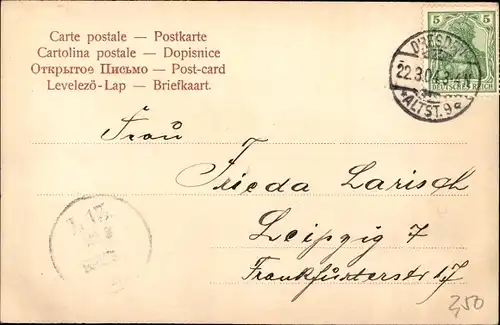 Carte postale — Postkarte
Cartolina postale — Dopisnice
Открытое Письмо — Post-card
Levelező-Lap — Briefkaart.
5 5
DEUTSCHES REICH
DRESDEN
22.3.04.3-4N
ALTST. 9
Frau
Frieda Larisch
Leipzig 7
Frankfurterstr 17
2,50